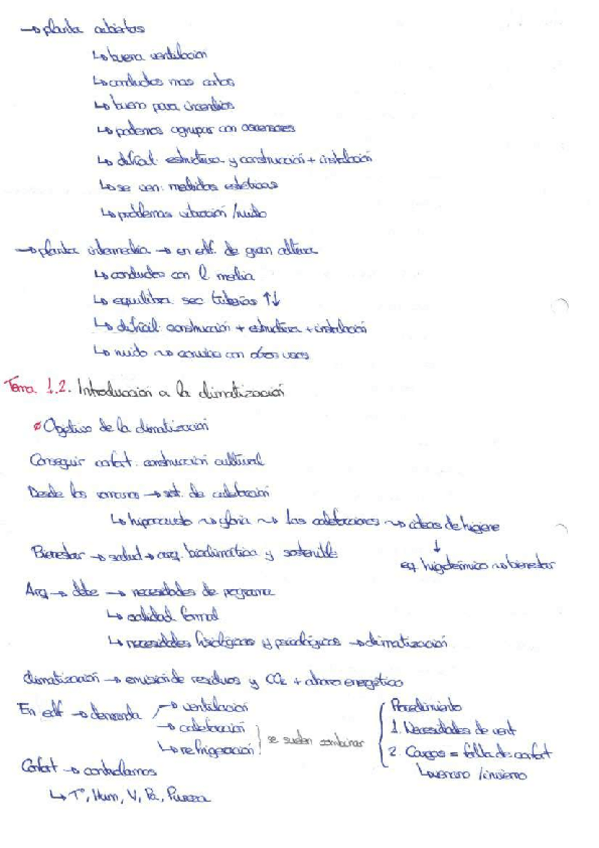 → planta cubiertas
↳ buena ventilación
↳ conductos mas cortos
↳ bueno para incendios
↳ podemos agrupar con ascensores
↳ dificil: estructura y construcción + instalación
↳ se ven: medidas estéticas
↳ problemas vibración / ruido
→ planta intermedia → en edf. de gran altura
↳ conductos con l media
↳ equilibra sec tuberías ↑↓
↳ dificil: construcción + estructura + instalación
↳ ruido ~> convive con otros usos
Tema 1.2. Introducción a la climatización
Objetivo de la climatización
Conseguir confort: construcción cultural
Desde los romanos → sist. de calefacción
↳ hipocausto ~> gloria ~> las calefacciones ~> ideas de higiene
↓
Bienestar → salud → arq. bioclimática y sostenible
eq. higrotérmico ~> bienestar
Arq → debe → necesidades de programa
↳ calidad formal
↳ necesidades fisiológicas y psicológicas → climatización
climatización → emisión de residuos y CO2 + ahorro energético
En edf → demanda → ventilación
→ calefacción
↳ refrigeración
se suelen combinar
Procedimiento
1. Necesidades de vent
2. Cargas = falta de confort
↳ verano / invierno
Confort → controlamos
↳ Tº, Hum, V, Pureza